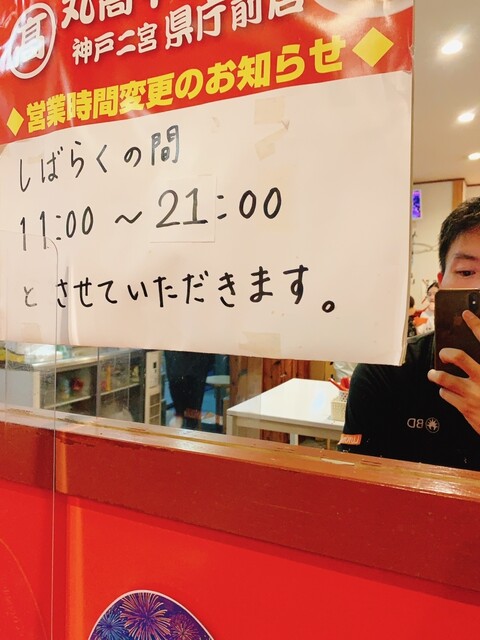 高
丸高
神戸二宮 県庁前店
◆営業時間変更のお知らせ◆
しばらくの間
11:00 ～ 21:00
とさせていただきます。
BD